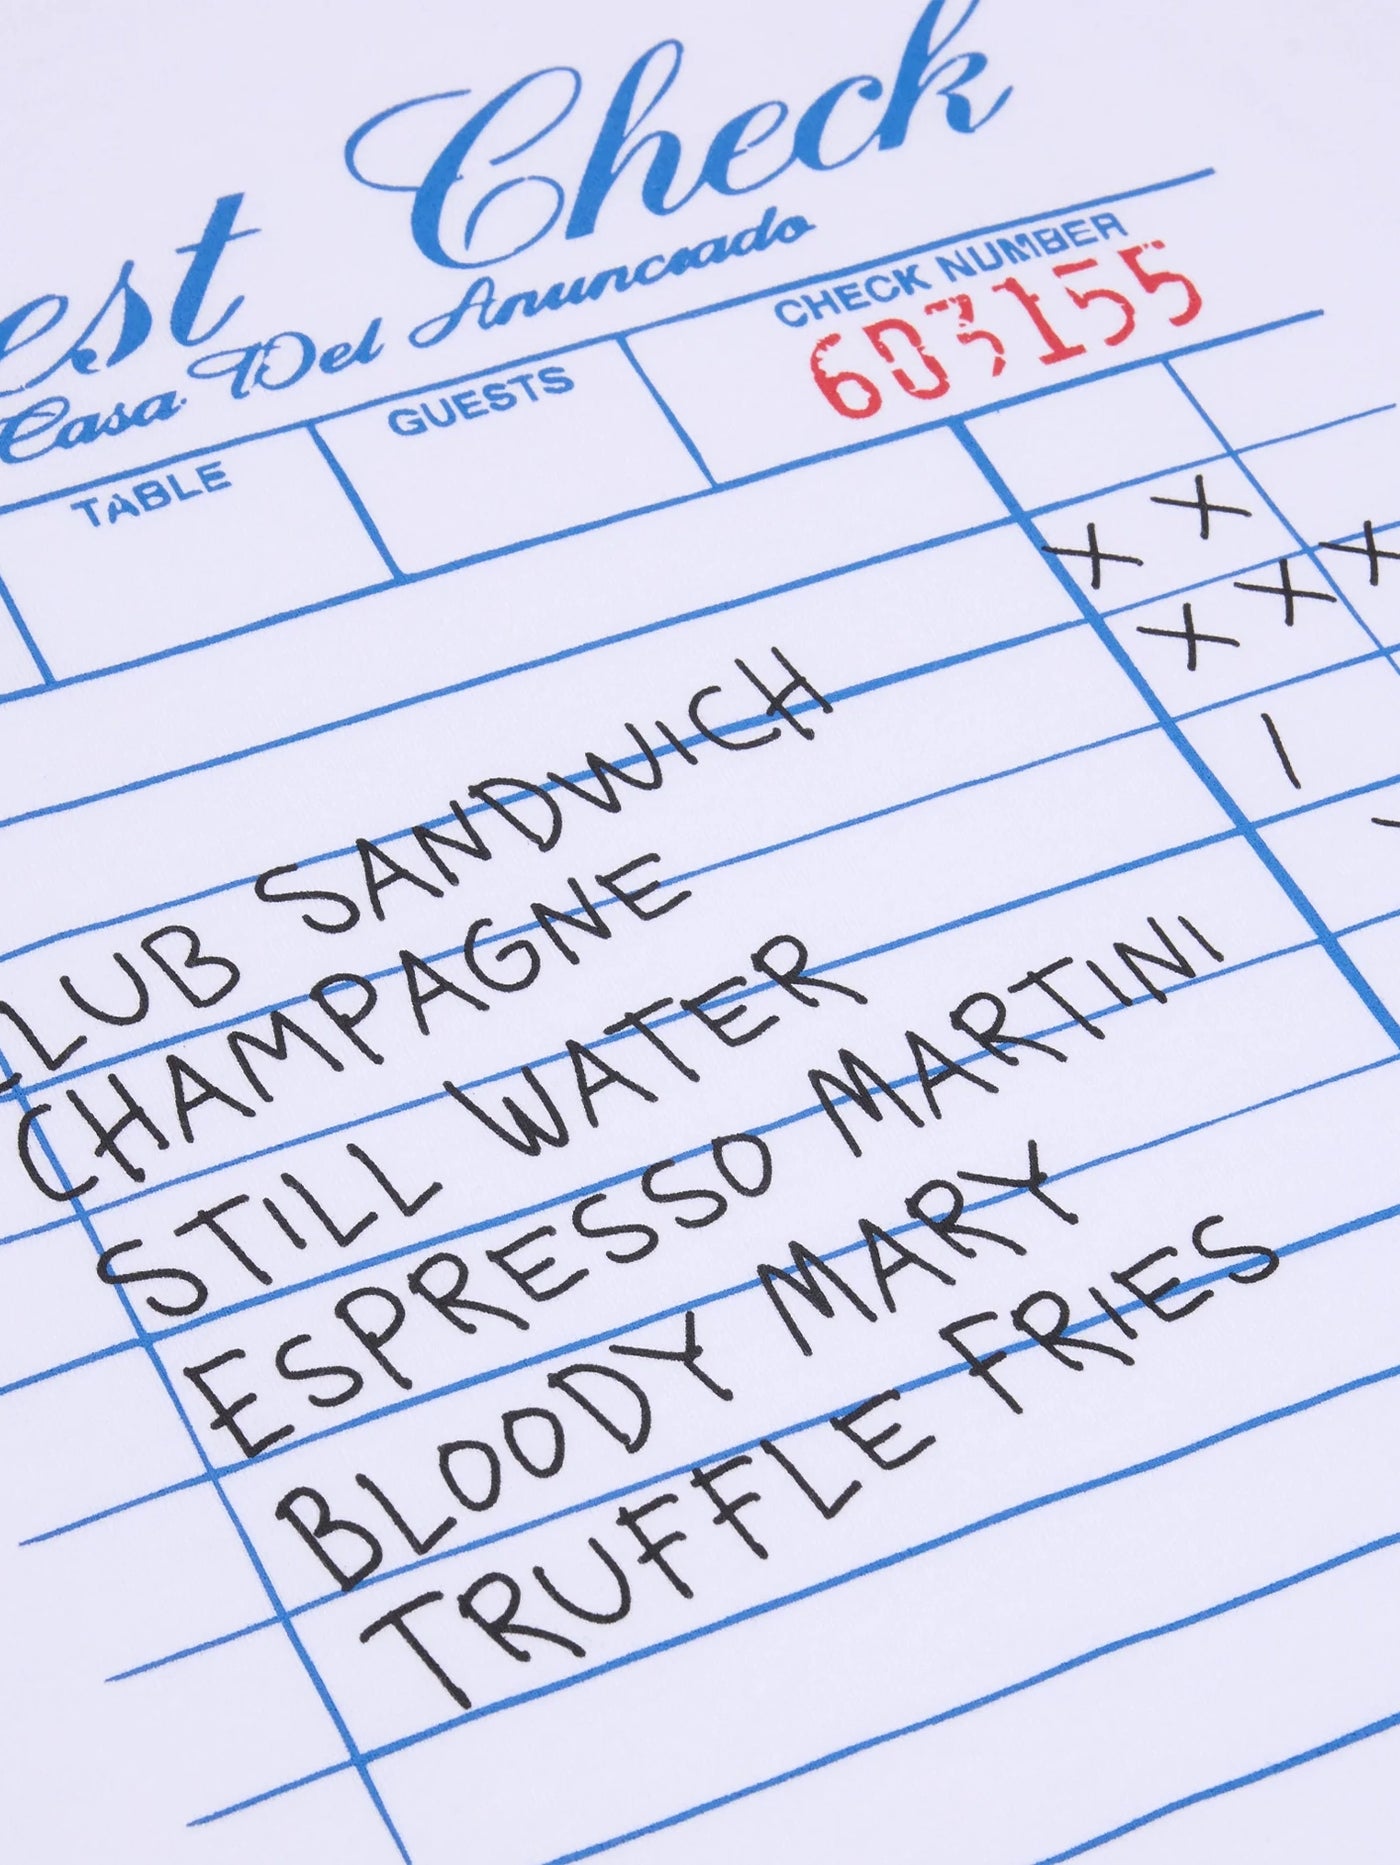 est Check
Casa Del Anunciado
TABLE
GUESTS
CHECK NUMBER
603155
X X
X X X
1
LUB SANDWICH
CHAMPAGNE
STILL WATER
ESPRESSO MARTINI
BLOODY MARY
TRUFFLE FRIES